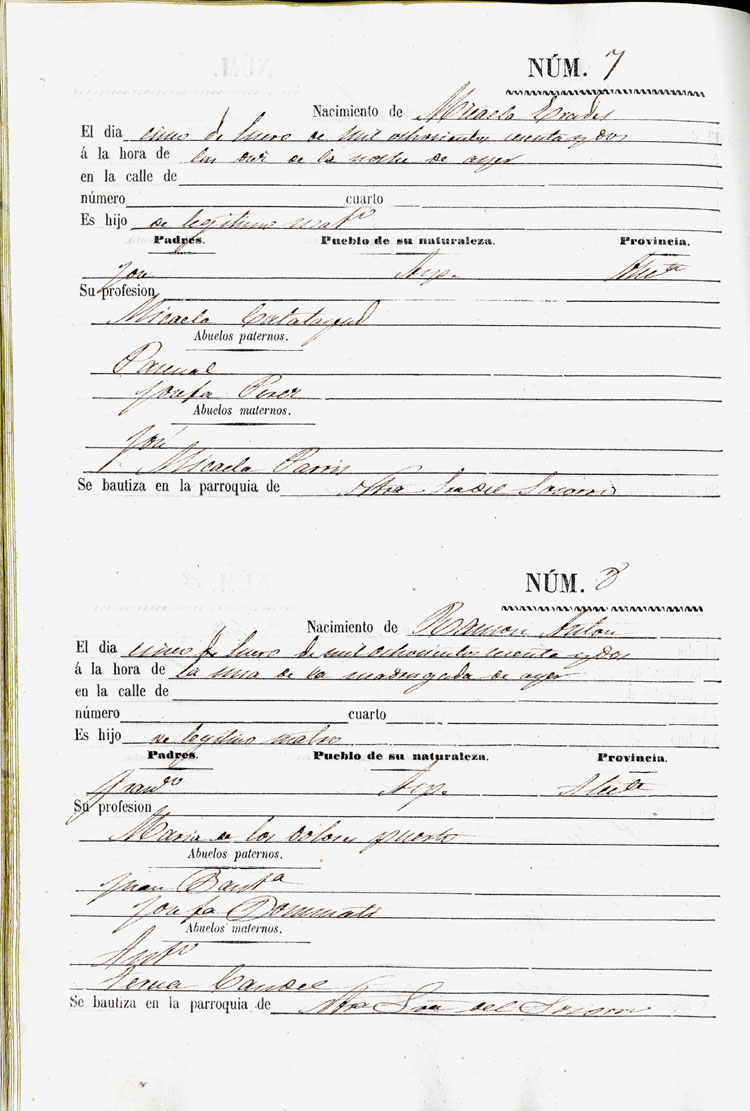 NÚM. 7
Nacimiento de Micaela
El dia cinco de Enero de mil ochocientos sesenta y dos
á la hora de las de la noche de ayer
en la calle de
número cuarto
Es hijo de legitimo mat.o
Padres. Pueblo de su naturaleza. Provincia.
José Asp. Alic.te
Su profesion
Micaela Calatayud
Abuelos paternos.
Pascual
Josefa Perez
Abuelos maternos.
José
Micaela
Se bautiza en la parroquia de Ntra Sra del Socorro
NÚM. 8
Nacimiento de Ramon Anton
El dia cinco de Enero de mil ochocientos sesenta y dos
á la hora de la una de la madrugada de ayer
en la calle de
número cuarto
Es hijo de legitimo
Padres. Pueblo de su naturaleza. Provincia.
Fran.co Asp. Alic.te
Su profesion
Maria de los dolores puerto
Abuelos paternos.
Juan Baut.a
Josefa
Abuelos maternos.
Ant.o
Candel
Se bautiza en la parroquia de Ntra Sra del Socorro